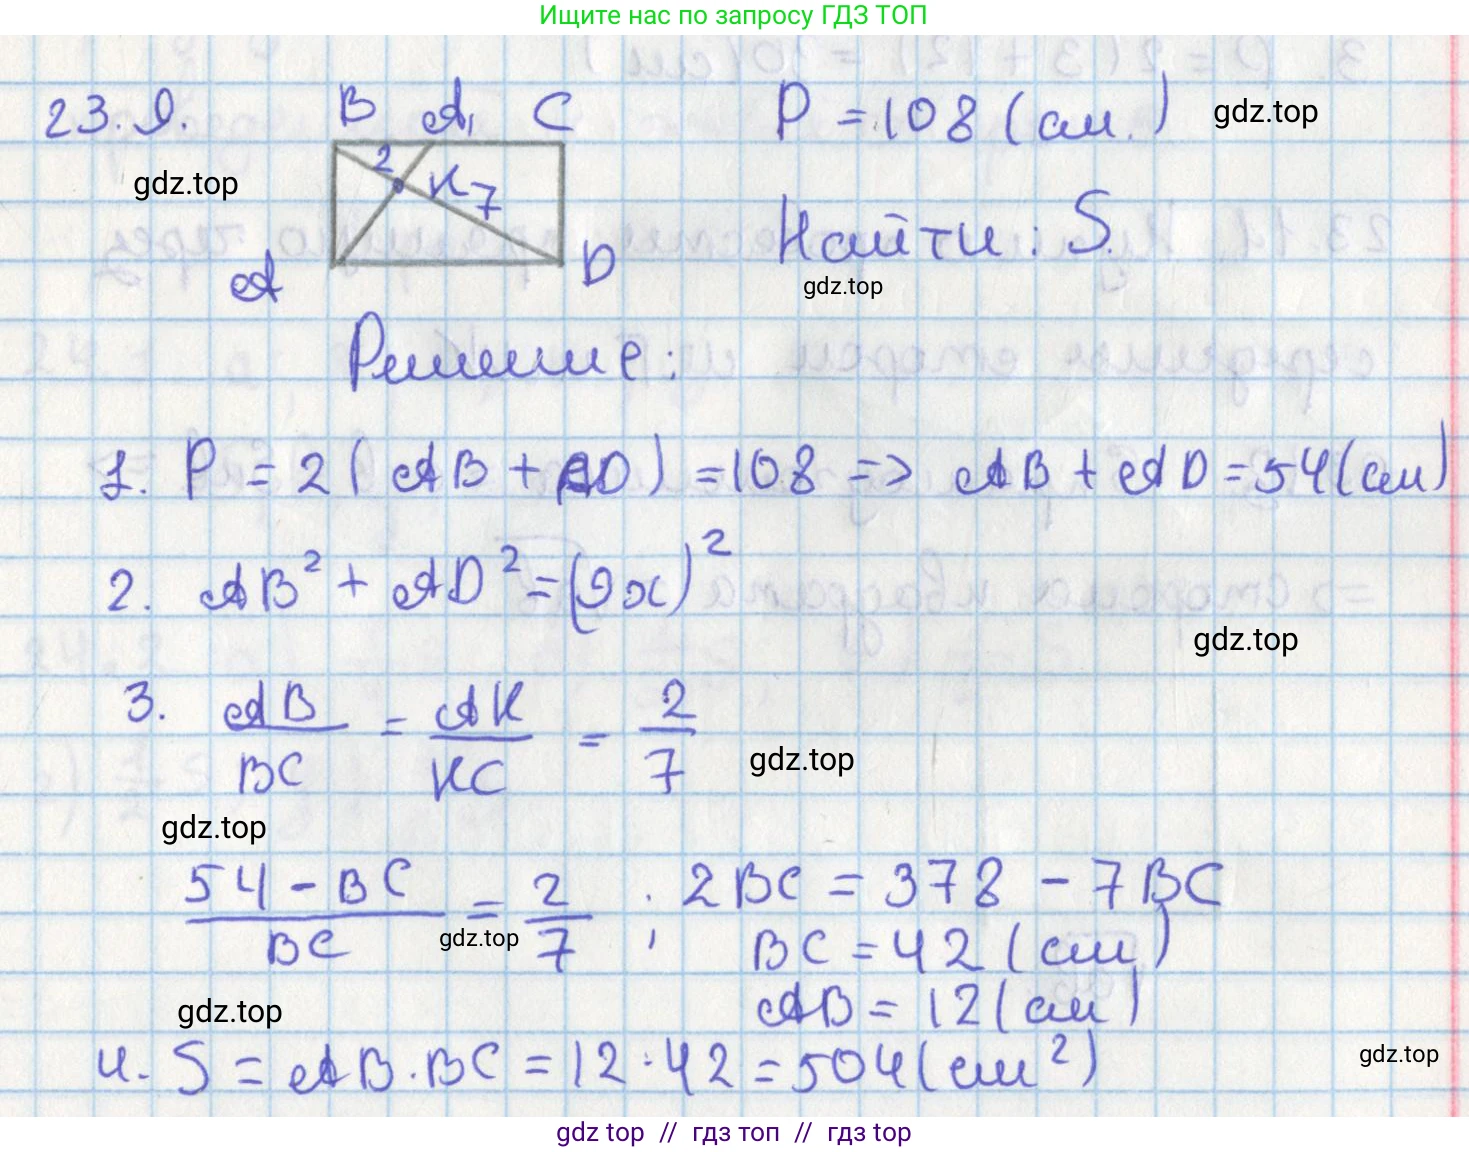 Ищите нас по запросу ГДЗ ТОП
23.9. B A₁ C P = 108 (см.) gdz.top
gdz.top 2 K 7
Найти: S.
A D gdz.top
Решение:
1. P = 2(AB + AD) = 108 => AB + AD = 54 (см)
2. AB² + AD² = (9x)²
gdz.top
3. AB/BC = AK/KC = 2/7 gdz.top
gdz.top
(54 - BC)/BC = 2/7 ; 2BC = 378 - 7BC
gdz.top BC = 42 (см)
gdz.top AB = 12 (см)
4. S = AB · BC = 12 · 42 = 504 (см²) gdz.top
gdz top // гдз топ // гдз top